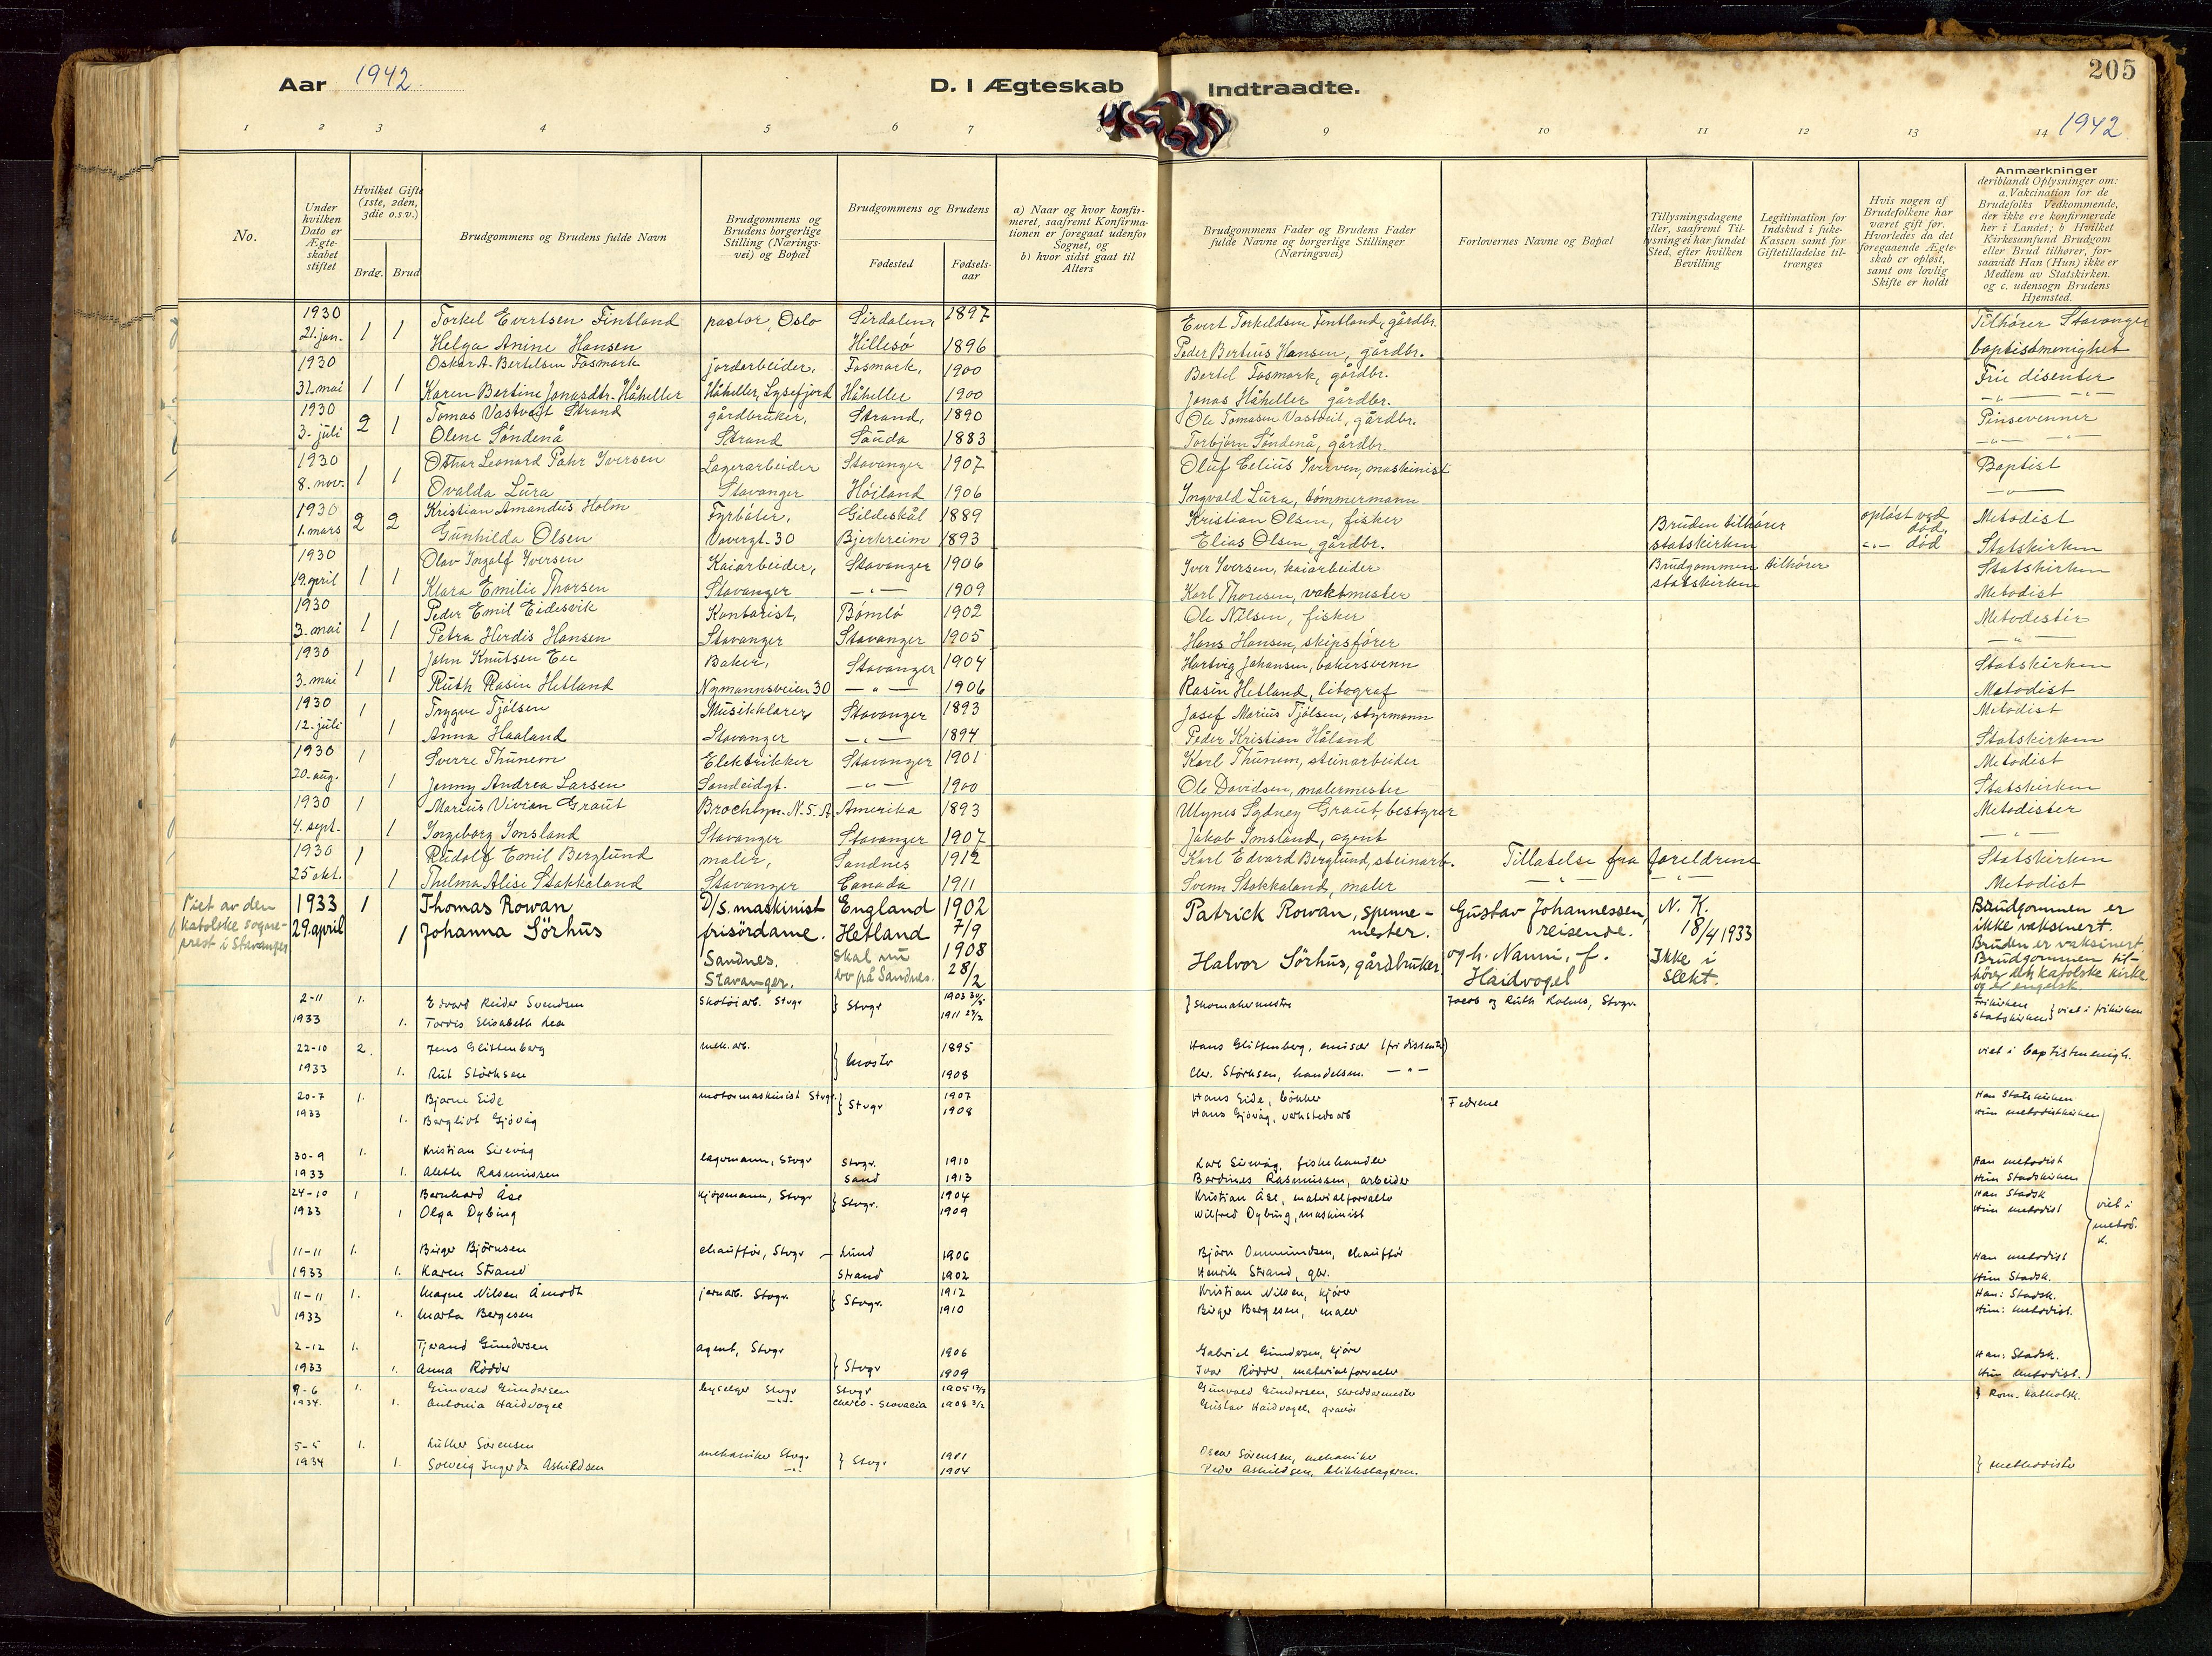 Aar 1942. D. I Ægteskab Indtraadte. 205
1942.
1 2 3 4 5 6 7 8 9 10 11 12 13 14
No.
Under hvilken Dato er Ægteskabet stiftet
Hvilket Gifte (1ste, 2den, 3die o.s.v.)
Brdg. Brud
Brudgommens og Brudens fulde Navn
Brudgommens og Brudens borgerlige Stilling (Næringsvei) og Bopæl
Brudgommens og Brudens
Fødested
Fødselsaar
a) Naar og hvor konfirmeret, saafremt Konfirmationen er foregaat udenfor Sognet, og
b) hvor sidst gaat til Alters
Brudgommens Fader og Brudens Fader fulde Navne og borgerlige Stillinger (Næringsvei)
Forlovernes Navne og Bopæl
Tillysningsdagene eller, saafremt Tillysning ei har fundet Sted, efter hvilken Bevilling
Legitimation for Indskud i Enke-Kassen samt for Giftetilladelse tiltrænges
Hvis nogen af Brudefolkene har været gift før. Hvorledes da det foregaaende Ægteskab er opløst, samt om lovlig Skifte er holdt
Anmærkninger
deriblandt Oplysninger om: a. Vakcination for de Brudefolks Vedkommende, der ikke ere konfirmerede her i Landet; b Hvilket Kirkesamfund Brudgom eller Brud tilhører, forsaavidt Han (Hun) ikke er Medlem av Statskirken. og c. udensogn Brudens Hjemsted.
1930 Torkel Evertsen Fintland pastor, Oslo Sirdalen, 1897 Evert Torkeldsen Fintland, gårdbr. Tilhører Stavanger
21. jan. 1 1 Helga Anine Hansen Hillesö 1896 Peder Bertius Hansen, gårdbr. baptistmenighet
1930 Oskar A. Bertelsen Fosmark jordarbeider, Fosmark, 1900 Bertel Fosmark, gårdbr. Frie disenter
31. mai 1 1 Karen Bertine Jonasdtr. Håheller Håheller, Lysefjord Håheller 1900 Jonas Håheller gårdbr. —"— —"—
1930 Tomas Vastveit Strand gårdbruker, Strand, 1890 Ole Tomasen Vastveit, gårdbr. Pinsevenner
3. juli 2 1 Olene Söndenå Strand Sauda 1883 Torbjörn Söndenå, gårdbr. —"— —"—
1930 Othar Leonard Pahr Iversen Lagerarbeider Stavanger 1907 Oluf Celius Iversen, maskinist Baptist
8. nov. 1 1 Ovalda Lura Stavanger Höiland 1906 Ingvald Lura, tömmermann —"—
1930 Kristian Amandus Holm Fyrböter, Gildeskål 1889 Kristian Olsen, fisker Bruden tilhører oplöst ved död, Metodist
1. mars 2 2 Gunhilda Olsen Vavergt. 30 Bjerkreim 1893 Elias Olsen, gårdbr. statskirken —"— död Statskirken
1930 Olav Ingolf Iversen Kaiarbeider, Stavanger 1906 Iver Iversen, kaiarbeider Brudgommen tilhører Statskirken
19. april 1 1 Klara Emilie Thorsen Stavanger —"— 1909 Karl Thoresen, vaktmester statskirken Metodist
1930 Peder Emil Eidesvik Kontorist, Bömlö 1902 Ole Nilsen, fisker Metodister
3. mai 1 1 Petra Herdis Hansen Stavanger Stavanger 1905 Hans Hansen, skipsförer —"—
1930 John Knutsen Baker, Stavanger 1904 Hartvig Johansen, bakersvenn Statskirken
3. mai 1 1 Ruth Rasin Hetland Nymannsveien 30 —"— 1906 Rasin Hetland, litograf Metodist
1930 1 Trygve Tjölsen Musikklærer Stavanger 1893 Josef Marius Tjölsen, styrmann Metodist
12. juli 1 Anna Haaland Stavanger —"— 1894 Peder Kristian Håland Statskirken
1930 1 Sverre Thunem Elektrikker Stavanger 1901 Karl Thunem, steinarbeider Metodist
20. aug. 1 Jenny Andrea Larsen Sandeidgt. —"— 1900 Ole Davidsen, malermester Statskirken
1930 1 Marius Vivian Graut Amerika 1893 Sydney Graut, bestyrer Metodister
4. sept. 1 Ingeborg Imsland Stavanger Stavanger 1907 Jakob Imsland, agent —"—
1930 1 Rudolf Emil Berglund maler, Sandnes 1912 Karl Edvard Berglund, steinarb. Tillatelse fra foreldrene Statskirken
25 okt. 1 Thelma Alise Stokkaland Stavanger Canada 1911 Svenn Stokkaland, maler —"— —"— Metodist
Viet av den katolske sogneprest i Stavanger
1933 1 Thomas Rowan D/S. maskinist England 1902 Patrick Rowan, spinnemester. Gustav Johannessen, reisende. N. K. 18/4 1933 Brudgommen er ikke vaksinert.
29. april 1 Johanna Sörhus frisördame. Hetland 7/9 1908 28/2 Halvor Sörhus, gårdbruker og h. Nanni, f. Haidvogel Ikke i slekt. Bruden er vaksinert
Sandnes. Stavanger. skal nu bo på Sandnes. Brudgommen tilhörer den katolske kirke og er engelsk.
2-11 1. Edvard Reidar Svendsen Skotöiarb. Stvgr } Stvgr 1903 30/5 } skomakermestre Jacob og Ruth Stvgr. Frikirken
1933 1. Tordis Elisabeth Lea 1911 27/2 Statskirken } viet i frikirken
22-10 2. Jens Glittenberg mek. arb. } 1895 Hans Glittenberg, emisær (fri dissenter) viet i baptistmenigh.
1933 1. Rut Störksen 1908 Chr. Störksen, handelsm. —"—
20-7 1. Bjarne Eide motormaskinist Stvgr. } Stvgr 1907 Hans Eide, bökker Fedrene Han Statskirken
1933 1. Bergljot Gjövåg 1908 Hans Gjövåg, verkstedsarb Hun metodistkirken
30-9 1. Kristian Sirevåg lagermann, Stvgr Stvgr. 1910 Karl Sirevåg, fiskehandler Han metodist
1933 1. Alette Rasmussen Sand 1913 Berdines Rasmussen, arbeider Hun Statskirken
24-10 1 Bernhard Åse kjöpmann, Stvgr } Stvgr. 1904 Kristian Åse, materialforvalter Han Statsk
1933 1 Olga Dybing 1909 Wilfred Dybing, maskinist Hun metodist viet i metod. k.
11-11 1. Birger Björnsen chauffør, Stvgr Lund 1906 Björn Ommundsen, chauffør Han metodist
1933 1. Karen Strand Strand 1902 Henrik Strand, gbr. Hun Statsk.
11-11 1. Magne Nilsen Åmodt jernarb. Stvgr. } Stvgr. 1912 Kristian Nilsen, kjörer Han: Statsk.
1933 1. Marta Bergesen 1910 Birger Bergesen, maler Hun: metodist.
2-12 1. Tjerand Gundersen agent, Stvgr } Stvgr 1906 Gabriel Gundersen, kjörer Han: Statsk.
1933 1. Anna Rödder 1909 Ivar Rödder, materialforvalter Hun metodist.
9-6 1. Gunvald Gundersen Stvgr Stvgr 1905 Gunvald Gundersen, skreddermester } Rom. katholsk.
1934. 1. Antonia Haidvogel —"— 1908 3/2 Gustav Haidvogel, gravör
5-5 1. Luther Sörensen mekaniker Stvgr. } Stvgr. 1901 Oscar Sörensen, mekaniker } methodister
1934 1. Solveig Ingerda Askildsen —"— 1904 Peder Askildsen, blikkslagerm.